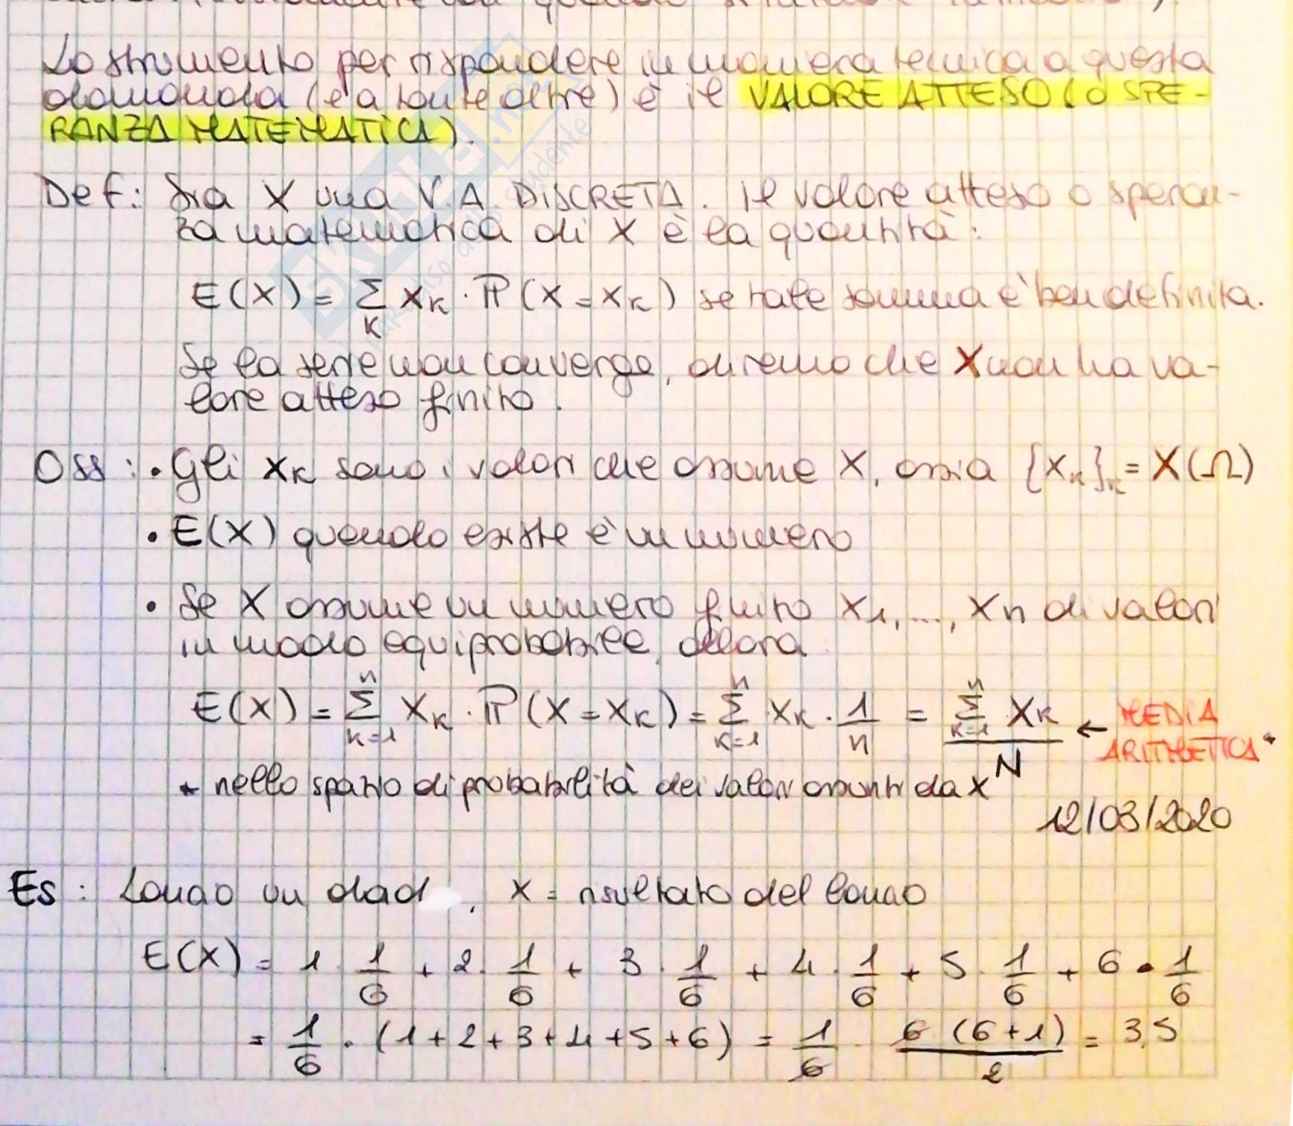 Lo strumento per rispondere in maniera tecnica a questa
domanda (e a tante altre) è il VALORE ATTESO (o SPE-
RANZA MATEMATICA).
Def: Sia X una V.A. DISCRETA. Il valore atteso o speran-
za matematica di X è la quantità:
E(X) = Σ_k x_k · P(X = x_k) se tale somma è ben definita.
Se la serie non converge, diremo che X non ha va-
lore atteso finito.
Oss: • Gli x_k sono i valori che assume X, ossia {x_k}_k = X(Ω)
• E(X) quando esiste è un numero
• Se X assume un numero finito x_1,..., x_n di valori
in modo equiprobabile, allora
E(X) = Σ_{k=1}^{n} x_k · P(X = x_k) = Σ_{k=1}^{n} x_k · 1/n = Σ_{k=1}^{n} x_k / N ← MEDIA ARITMETICA*
* nello spazio di probabilità dei valori assunti da X
12/03/2020
Es: Lancio un dad , X = risultato del lancio
E(X) = 1 · 1/6 + 2 · 1/6 + 3 · 1/6 + 4 · 1/6 + 5 · 1/6 + 6 · 1/6
= 1/6 · (1+2+3+4+5+6) = 1/6 · 6 (6+1)/2 = 3,5